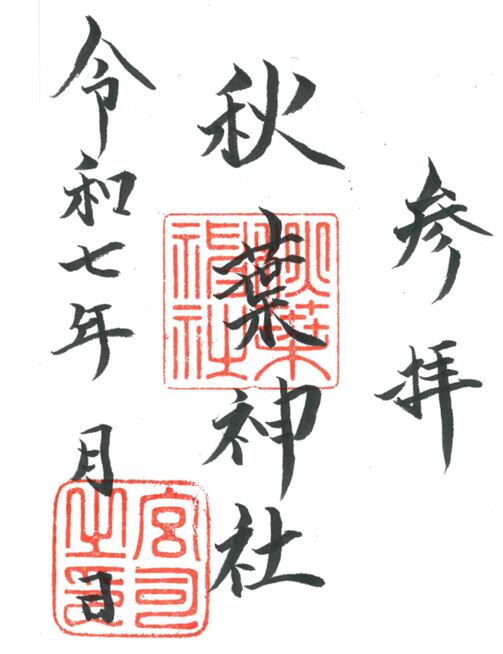 参拝
秋葉神社
秋葉神社
令和七年 月 日
宮司之印